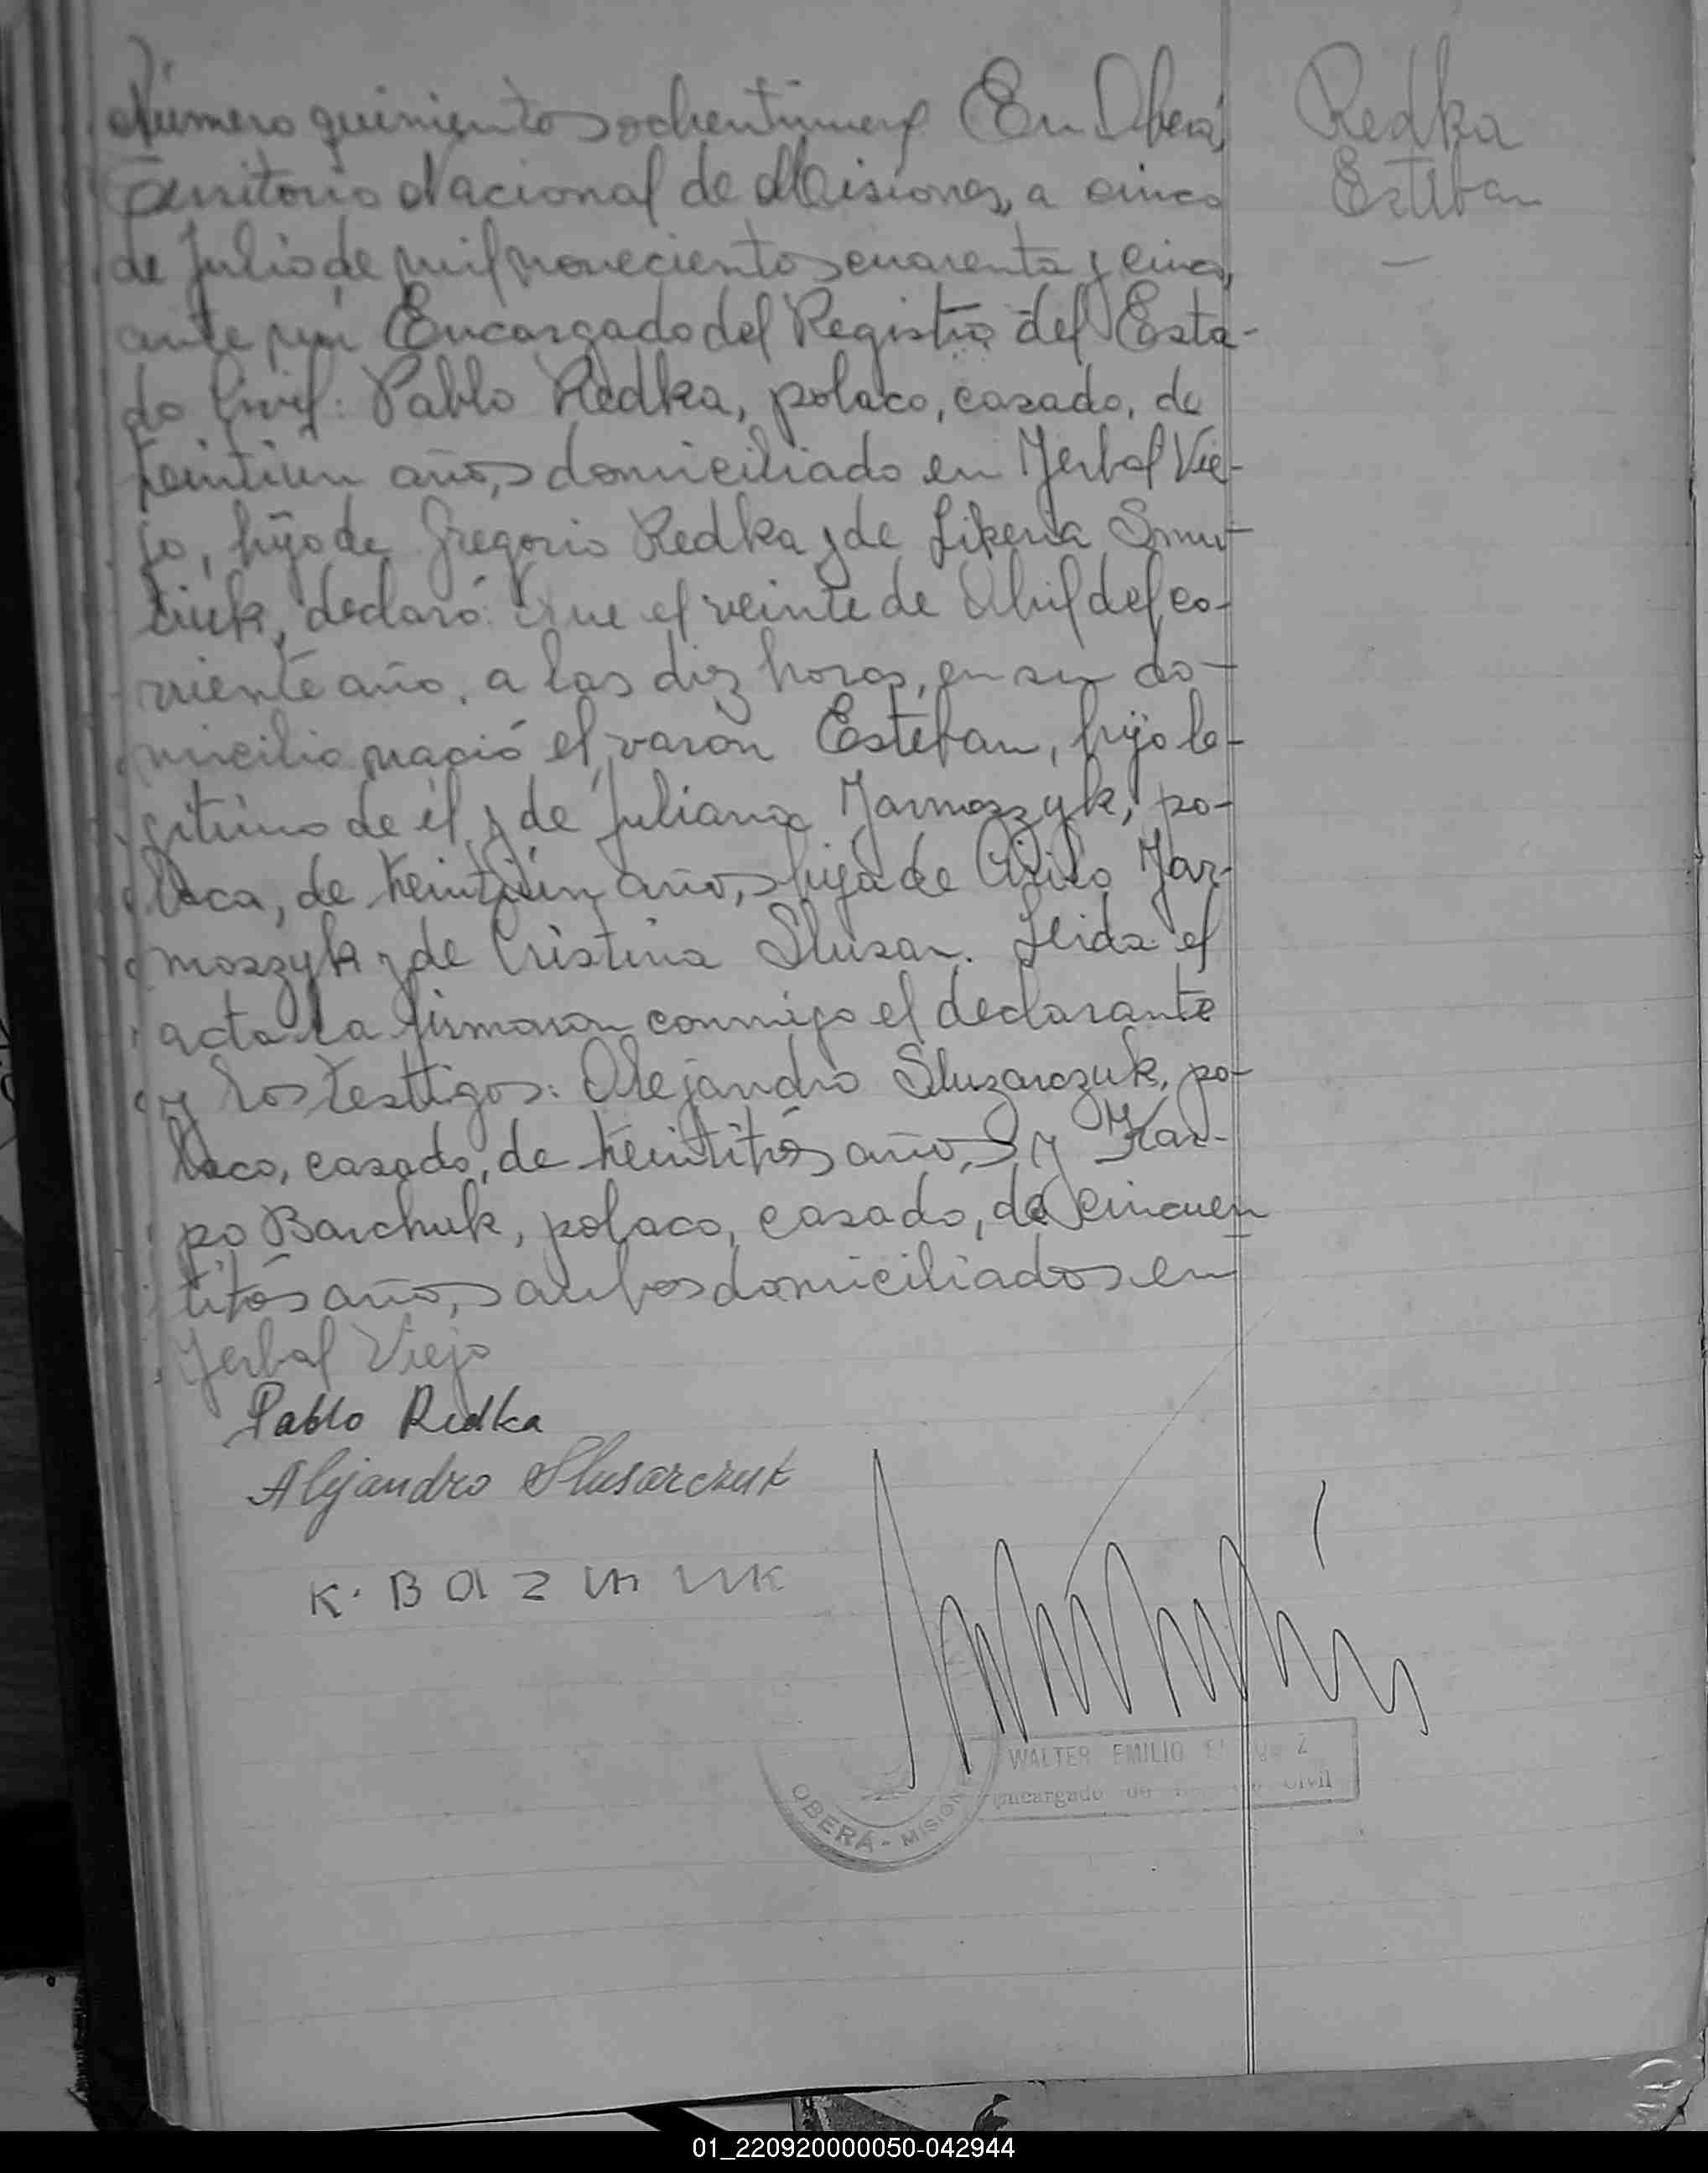 Número quinientos ochentinueve En Oberá,
Territorio Nacional de Misiones, a cinco
de Julio de mil novecientos cuarenta y cinco,
ante mi Encargado del Registro del Esta-
do Civil: Pablo Redka, polaco, casado, de
treintiun años, domiciliado en Yerbal Vie-
jo, hijo de Gregorio Redka y de Likeria Smu-
ciuk, declaró: Que el veinte de Abril del co-
rriente año, a las diez horas, en su do-
micilio nació el varon Esteban, hijo le-
gitimo de él y de Juliana Jarmoszyk, po-
laca, de treintiun años, hija de Cirilo Jar-
moszyk y de Cristina Slusar. Leida el
acta la firmaron conmigo el declarante
y los testigos: Alejandro Sluzarczuk, po-
laco, casado, de treintitrés años, y Kar-
po Barchuk, polaco, casado, de cincuen
titrés años, ambos domiciliados en
Yerbal Viejo
Redka
Esteban
Pablo Redka
Alejandro Slusarczuk
WALTER EMILIO
Encargado Civil
OBERÁ - MISION
01_220920000050-042944